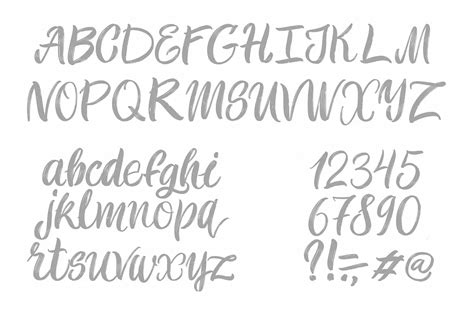 ABCDEFGHIJKLM
NOPQRMSUVWXYZ
abcdefghi
jklmnopq
rtsuvwxyz
12345
67890
?!:-, #@